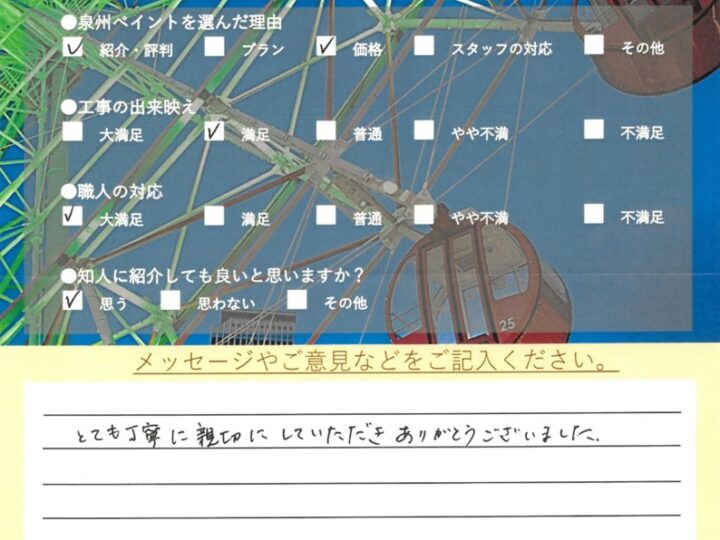 ●泉州ペイントを選んだ理由
✓ 紹介・評判 □ プラン ✓ 価格 □ スタッフの対応 □ その他
●工事の出来映え
□ 大満足 ✓ 満足 □ 普通 □ やや不満 □ 不満足
●職人の対応
✓ 大満足 □ 満足 □ 普通 □ やや不満 □ 不満足
●知人に紹介しても良いと思いますか？
✓ 思う □ 思わない □ その他
25
メッセージやご意見などをご記入ください。
とても丁寧に親切にしていただきありがとうございました。